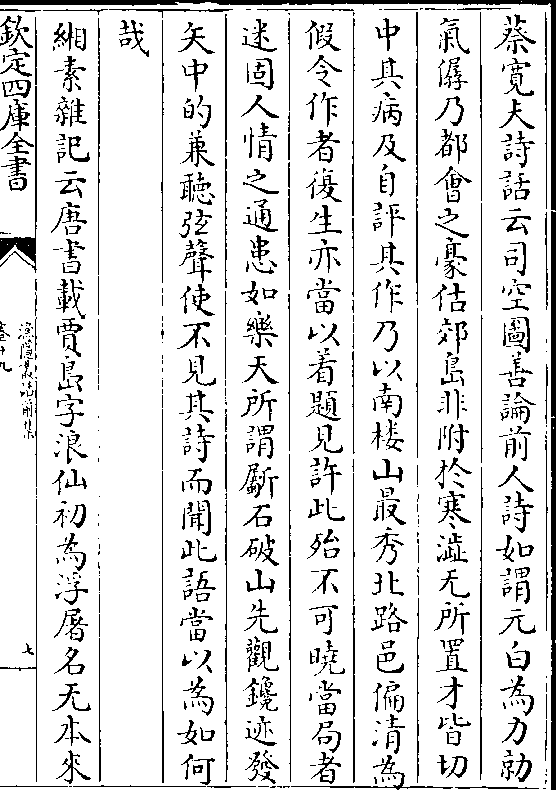 蔡寛夫詩話云司空圖善論前人詩如謂元白為力勍
氣孱乃都會之豪估郊島非附於寒澁无所置才皆切
中其病及自評其作乃以南樓山最秀北路邑偏清為
假令作者復生亦當以着題見許此殆不可曉當局者
迷固人情之通患如樂天所謂斸石破山先觀鑱迹發
矢中的兼聽弦聲使不見其詩而聞此語當以為如何
哉
緗素雜記云唐書載賈島字浪仙初為浮屠名无本來
欽定四庫全書
漁隱叢話前集
卷十九
七